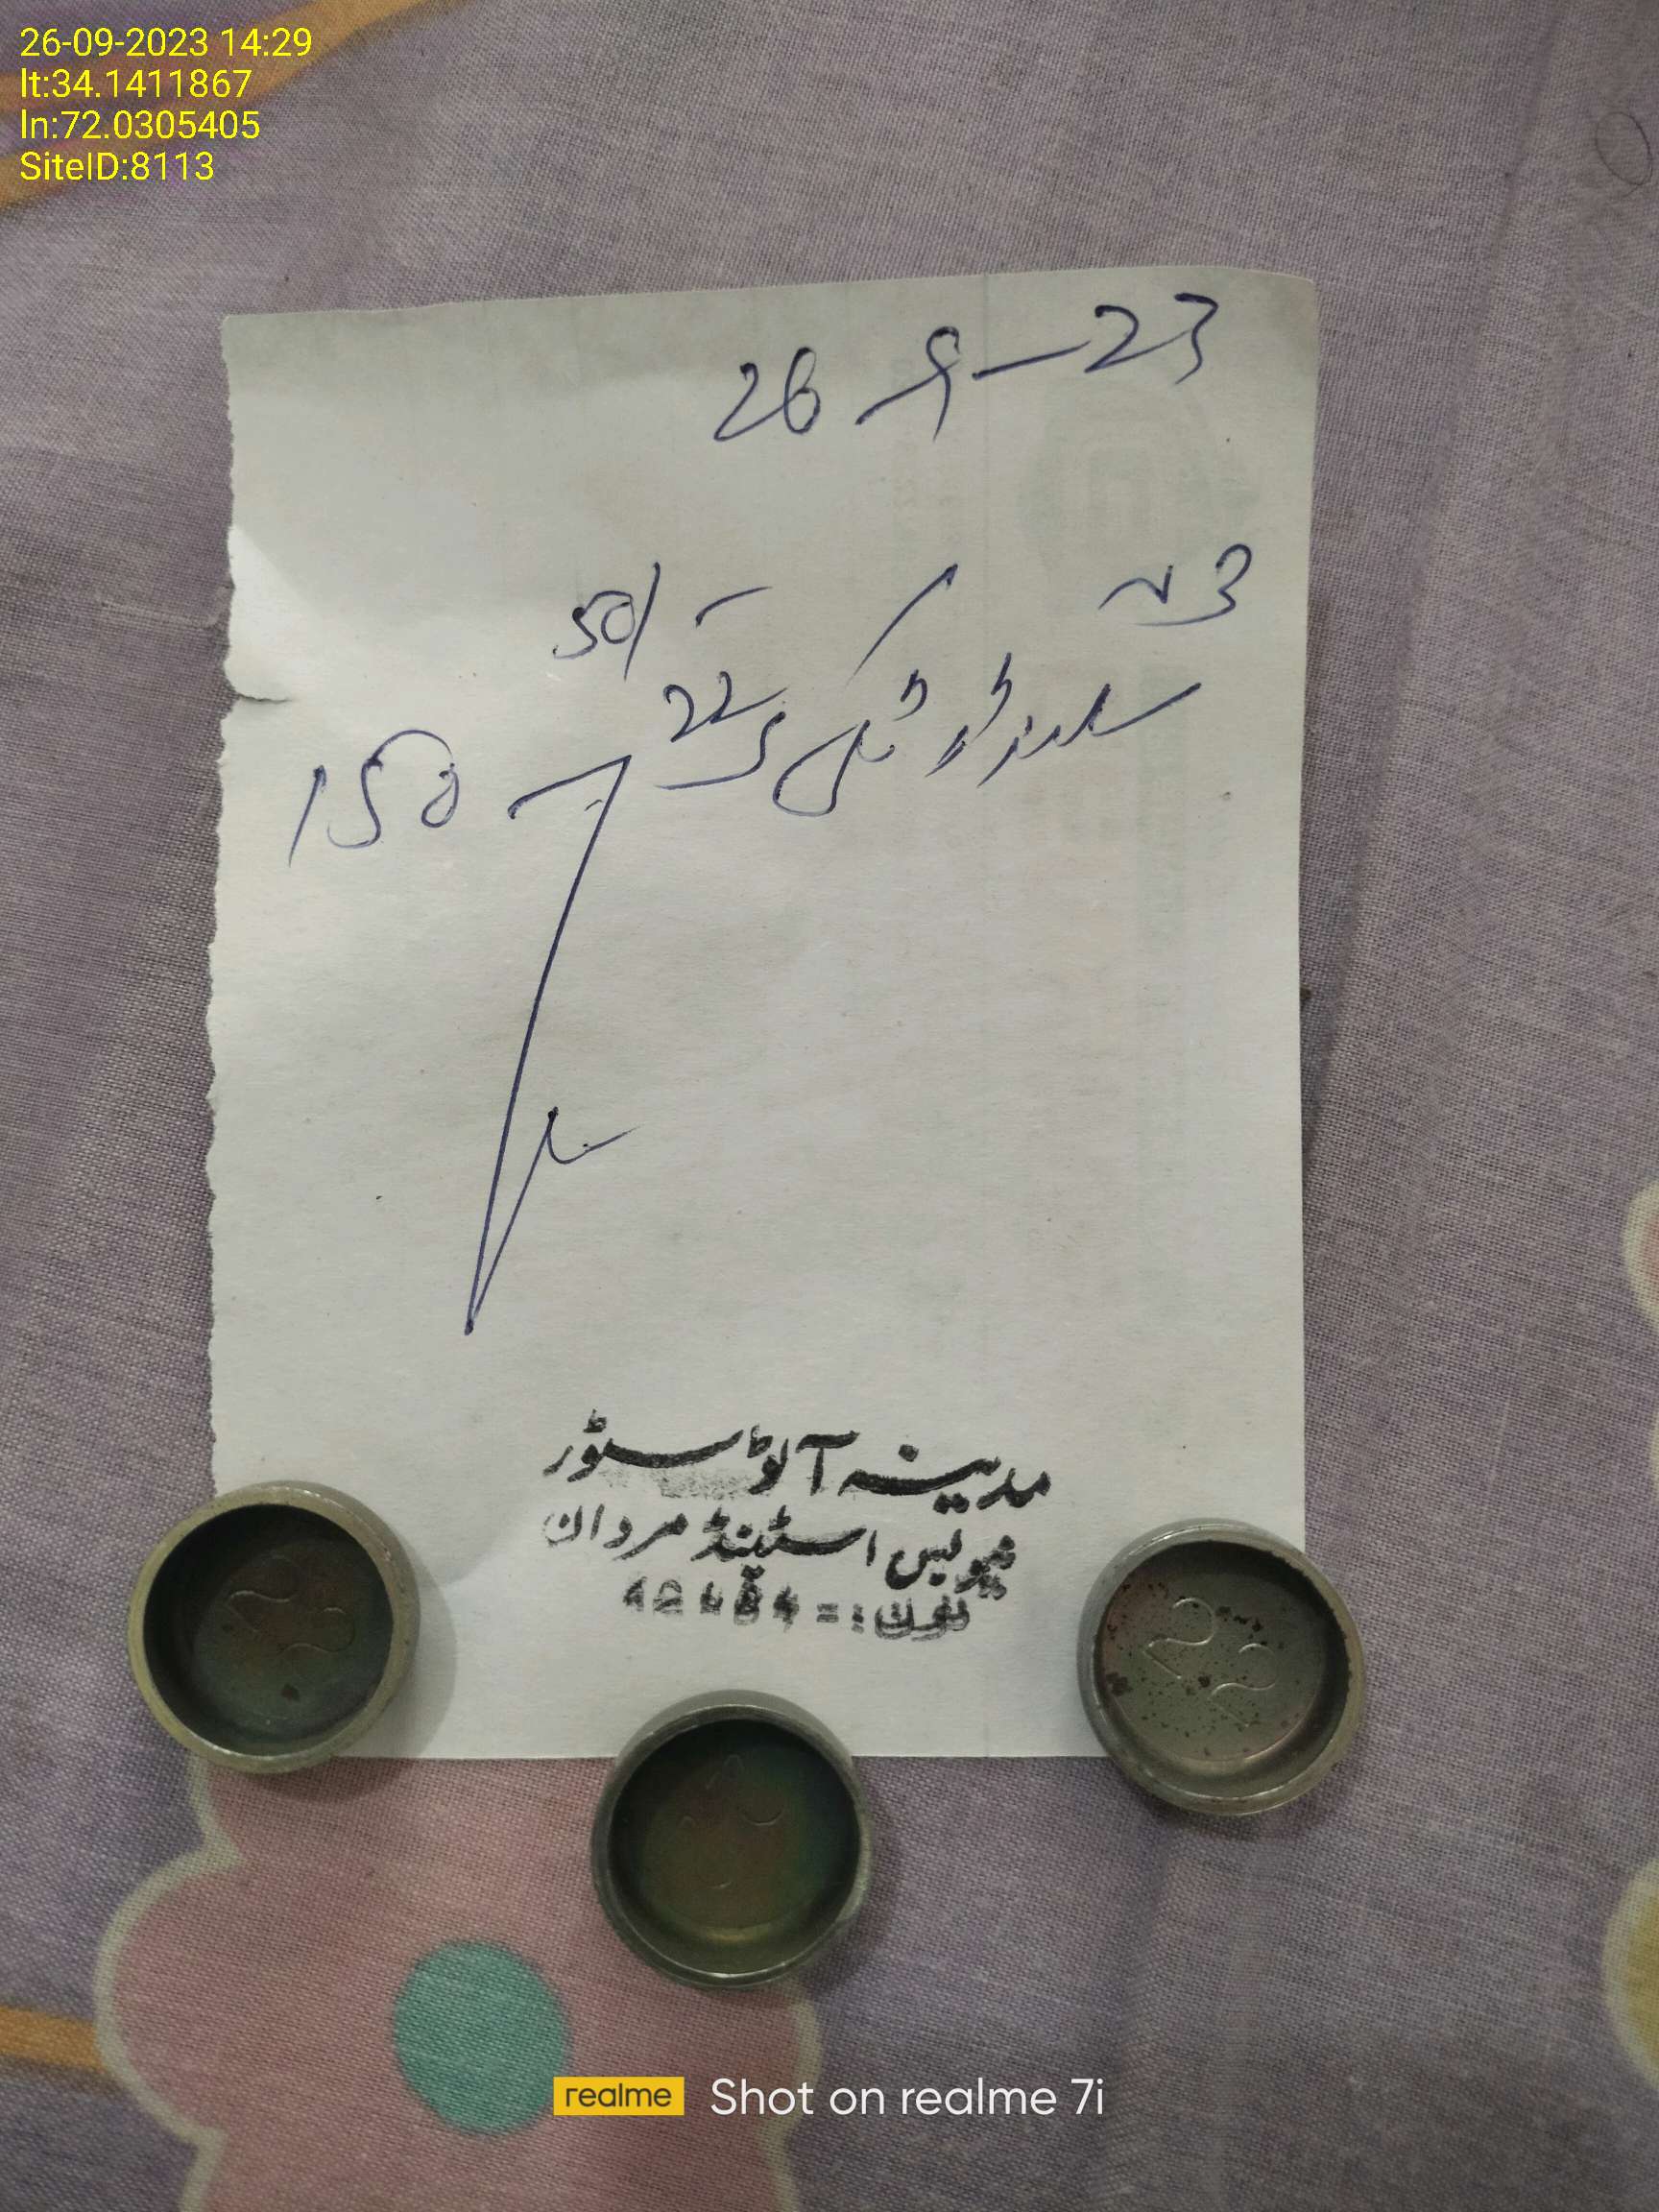 26-09-2023 14:29
lt:34.1411867
ln:72.0305405
SiteID:8113
26-9-23
3 عدد
50/-
سلنڈر
22
150
مدینہ آٹو سٹور
نیو بس اسٹینڈ مردان
فون:=
22
22
realme Shot on realme 7i